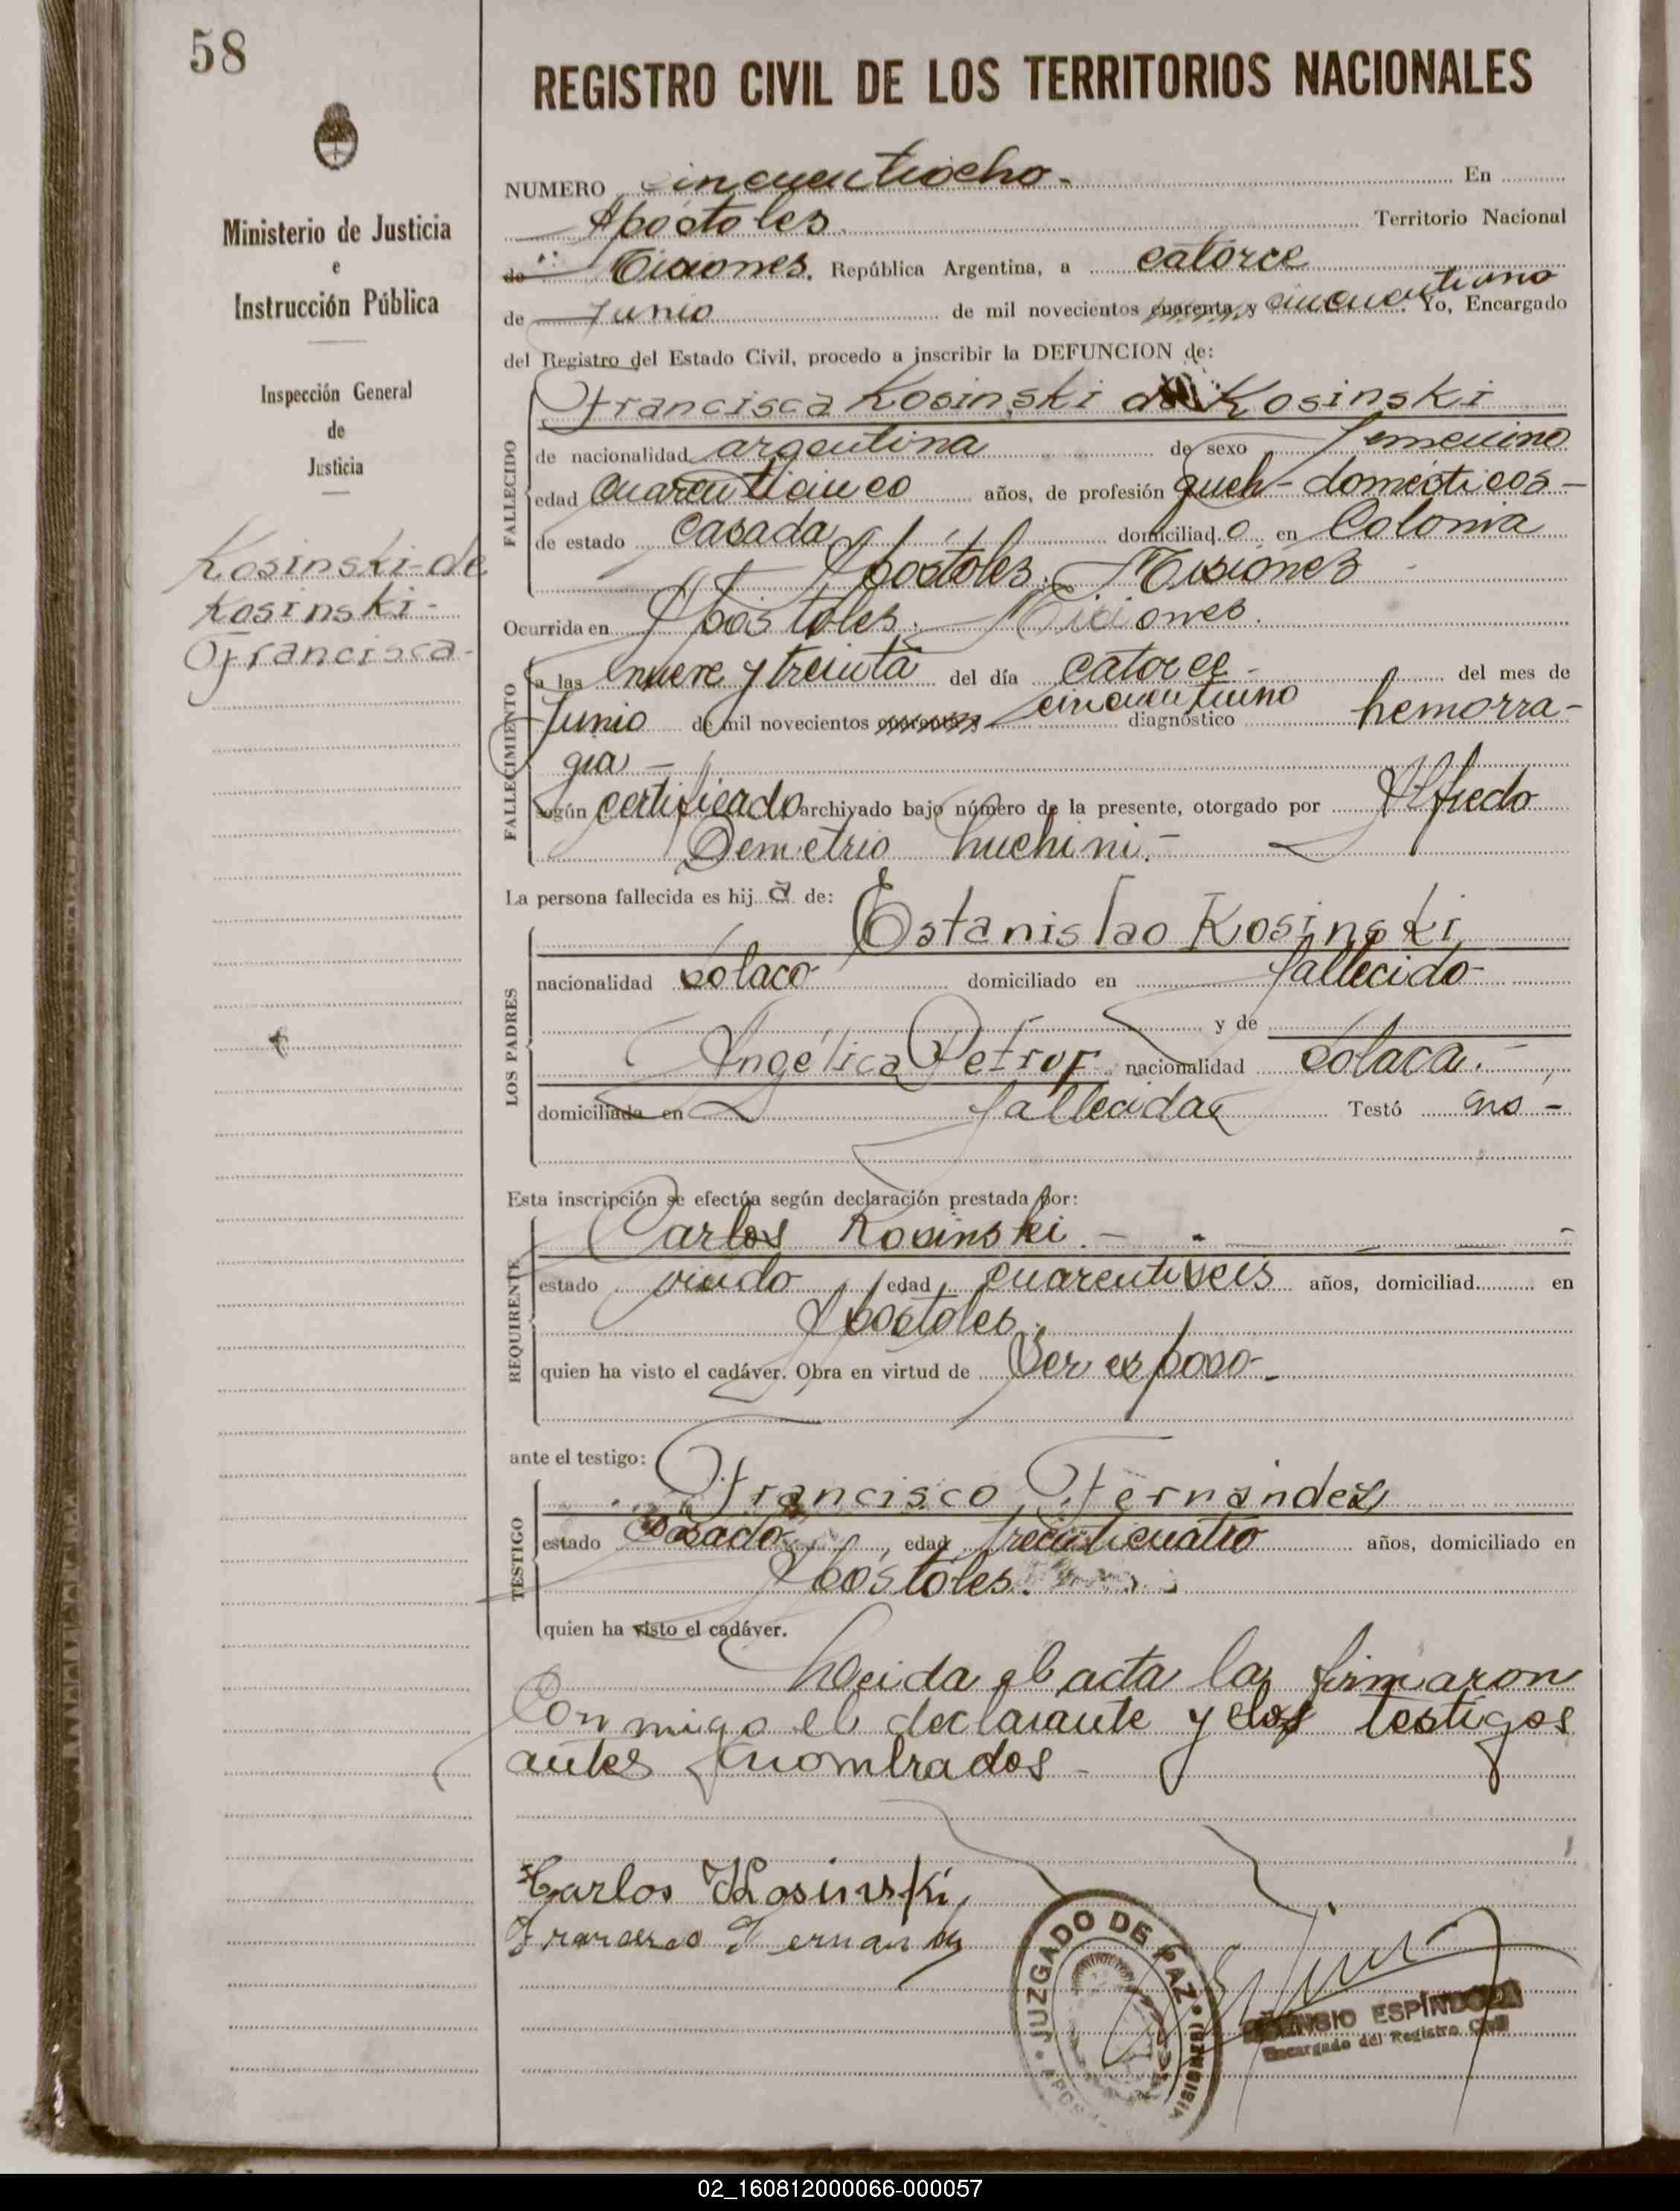 58
REGISTRO CIVIL DE LOS TERRITORIOS NACIONALES
Ministerio de Justicia
e
Instrucción Pública
Inspección General
de
Justicia
Kosinski-de
Kosinski-
Francisca-
NUMERO cincuentiocho- En
Apóstoles Territorio Nacional
de Misiones. República Argentina, a catorce
de Junio de mil novecientos cuarenta y cincuentiuno Yo, Encargado
del Registro del Estado Civil, procedo a inscribir la DEFUNCION de:
FALLECIDO
Francisca Kosinski de Kosinski
de nacionalidad argentina de sexo femenino
edad cuarenticinco años, de profesión queh- domésticos-
de estado casada domiciliad o en Colonia
Apóstoles. Misiones
Ocurrida en Apóstoles. Misiones.
FALLECIMIENTO
a las nueve y treinta del día catorce- del mes de
Junio de mil novecientos cuarenta cincuentiuno diagnóstico hemorra-
gia-
según certificado archivado bajo número de la presente, otorgado por Alfredo
Demetrio Luchini.-
La persona fallecida es hij a de:
LOS PADRES
Estanislao Kosinski
nacionalidad polaco domiciliado en fallecido-
y de
Angélica Petrof nacionalidad polaca.-
domiciliada en fallecida Testó no-
Esta inscripción se efectúa según declaración prestada por:
REQUIRENTE
Carlos Kosinski.-
estado viudo edad cuarentiseis años, domiciliad en
Apóstoles.
quien ha visto el cadáver. Obra en virtud de Ser esposo-
ante el testigo:
TESTIGO
Francisco Fernández
estado casado, edad treinticuatro años, domiciliado en
Apóstoles.
quien ha visto el cadáver.
Leida el acta la firmaron
conmigo el declarante y los testigos
antes nombrados-
Carlos Kosinski
Francisco Fernandez
JUZGADO DE PAZ
ESPÍNDOLA
Encargado del Registro Civil
02_160812000066-000057